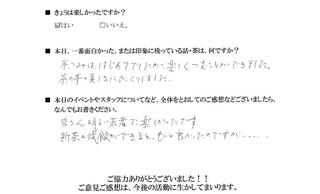 ■ きょうは楽しかったですか？
☑はい　□いいえ。
■ 本日、一番面白かった、または印象に残っている話・茶は、何ですか？
茶つみは、はじめてでしたが楽しくつむことができました。
茶の木の実はにたくりました。
■ 本日のイベントやスタッフについてなど、全体をとおしてのご感想などございましたら、
なんでもお書きください。
皆さん明るい若者で楽しかったです。
新茶の試飲ができると、もっと良かったのですが……
ご協力ありがとうございました！！
ご意見ご感想は、今後の活動に生かしてまいります。